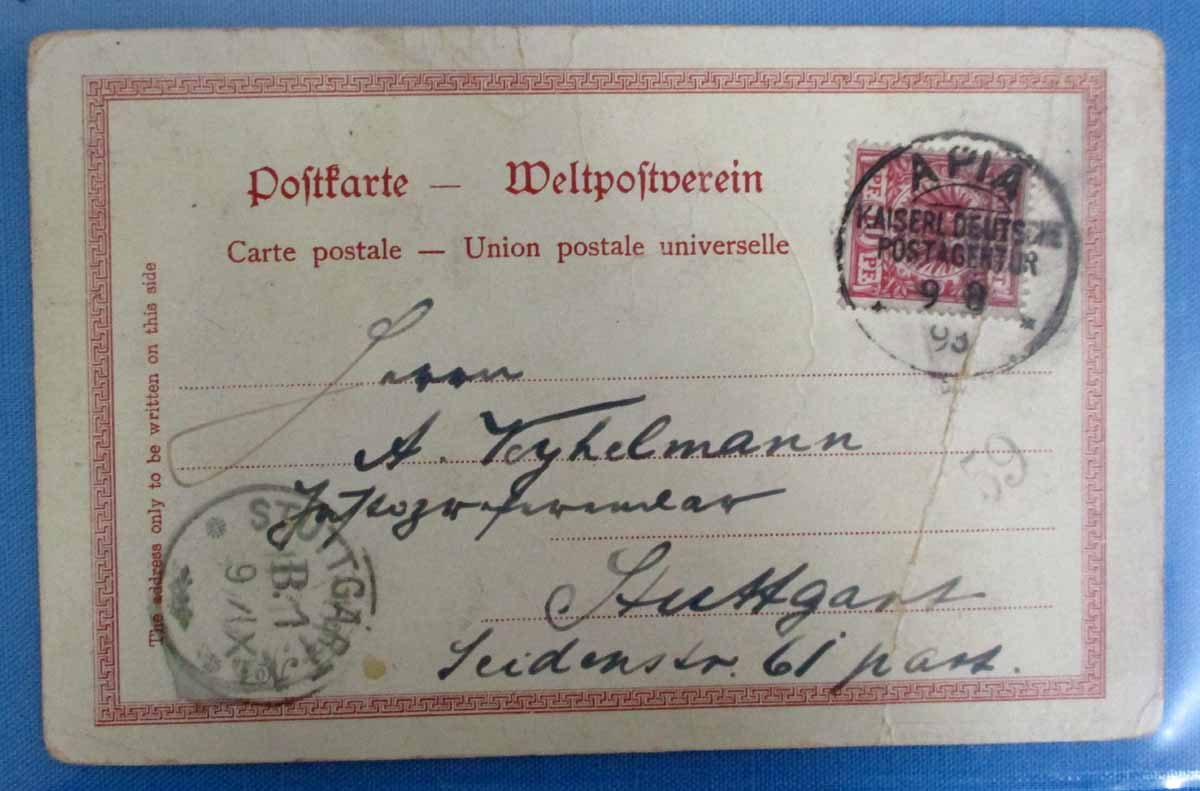 Postkarte — Weltpostverein
Carte postale — Union postale universelle
The address only to be written on this side
APIA
KAISERL. DEUTSCHE
POSTAGENTUR
9 8
93
10 PF.
Herrn
A. Vayhelmann
Stuttgart
Seidenstr. 61 part.
59
STUTTGART
B.1